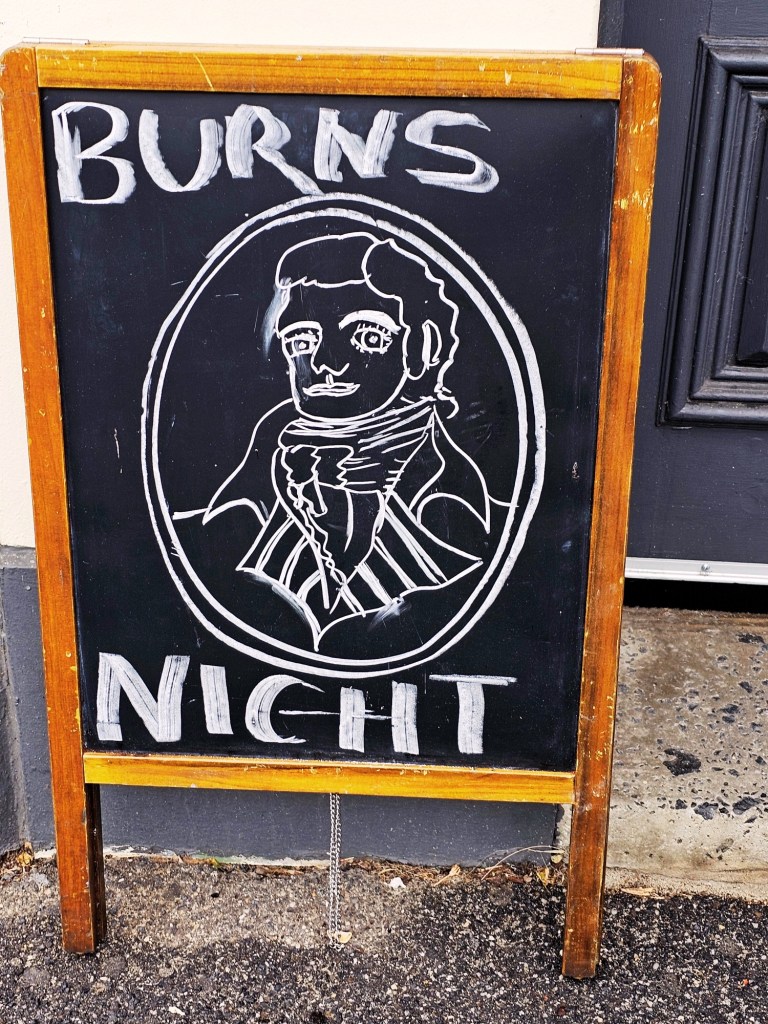 BURNS
NICHT